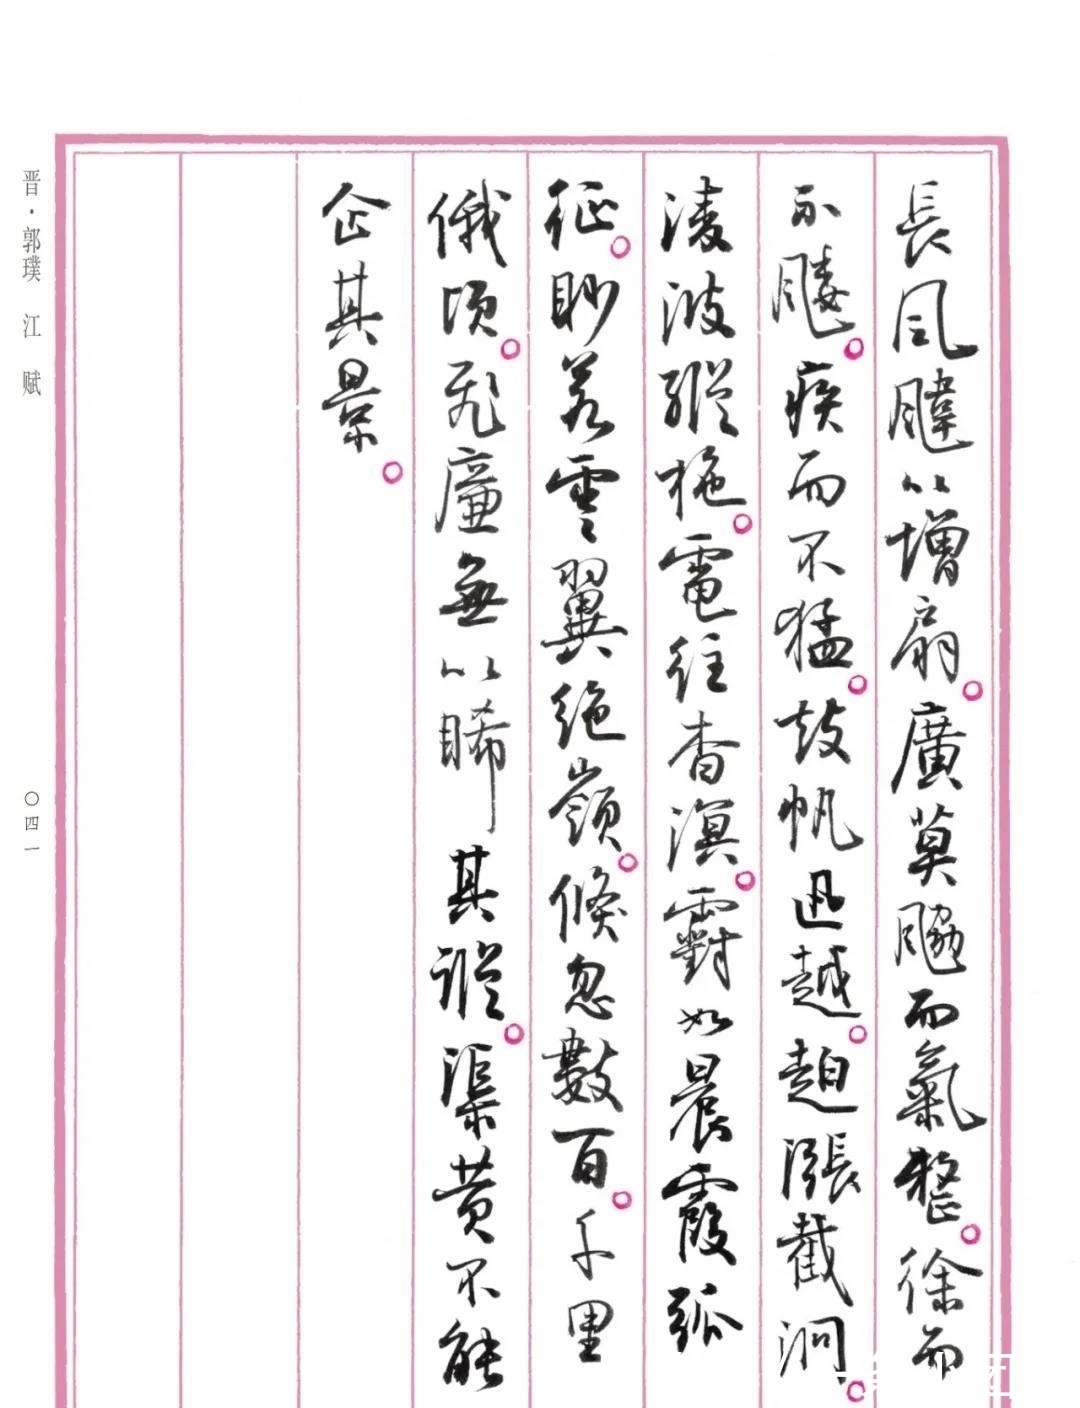 長風颹以增扇。廣莫䬅而氣整。徐而
不。疾而不猛。鼓帆迅越。漲截泂。
淩波縱柂。電往杳溟。䨴如晨霞孤
征。眇若雲翼絕嶺。倏忽數百。千里
俄頃。飛廉無以睎其蹤。渠黃不能
企其景。
晋·郭璞 江 赋
〇四一